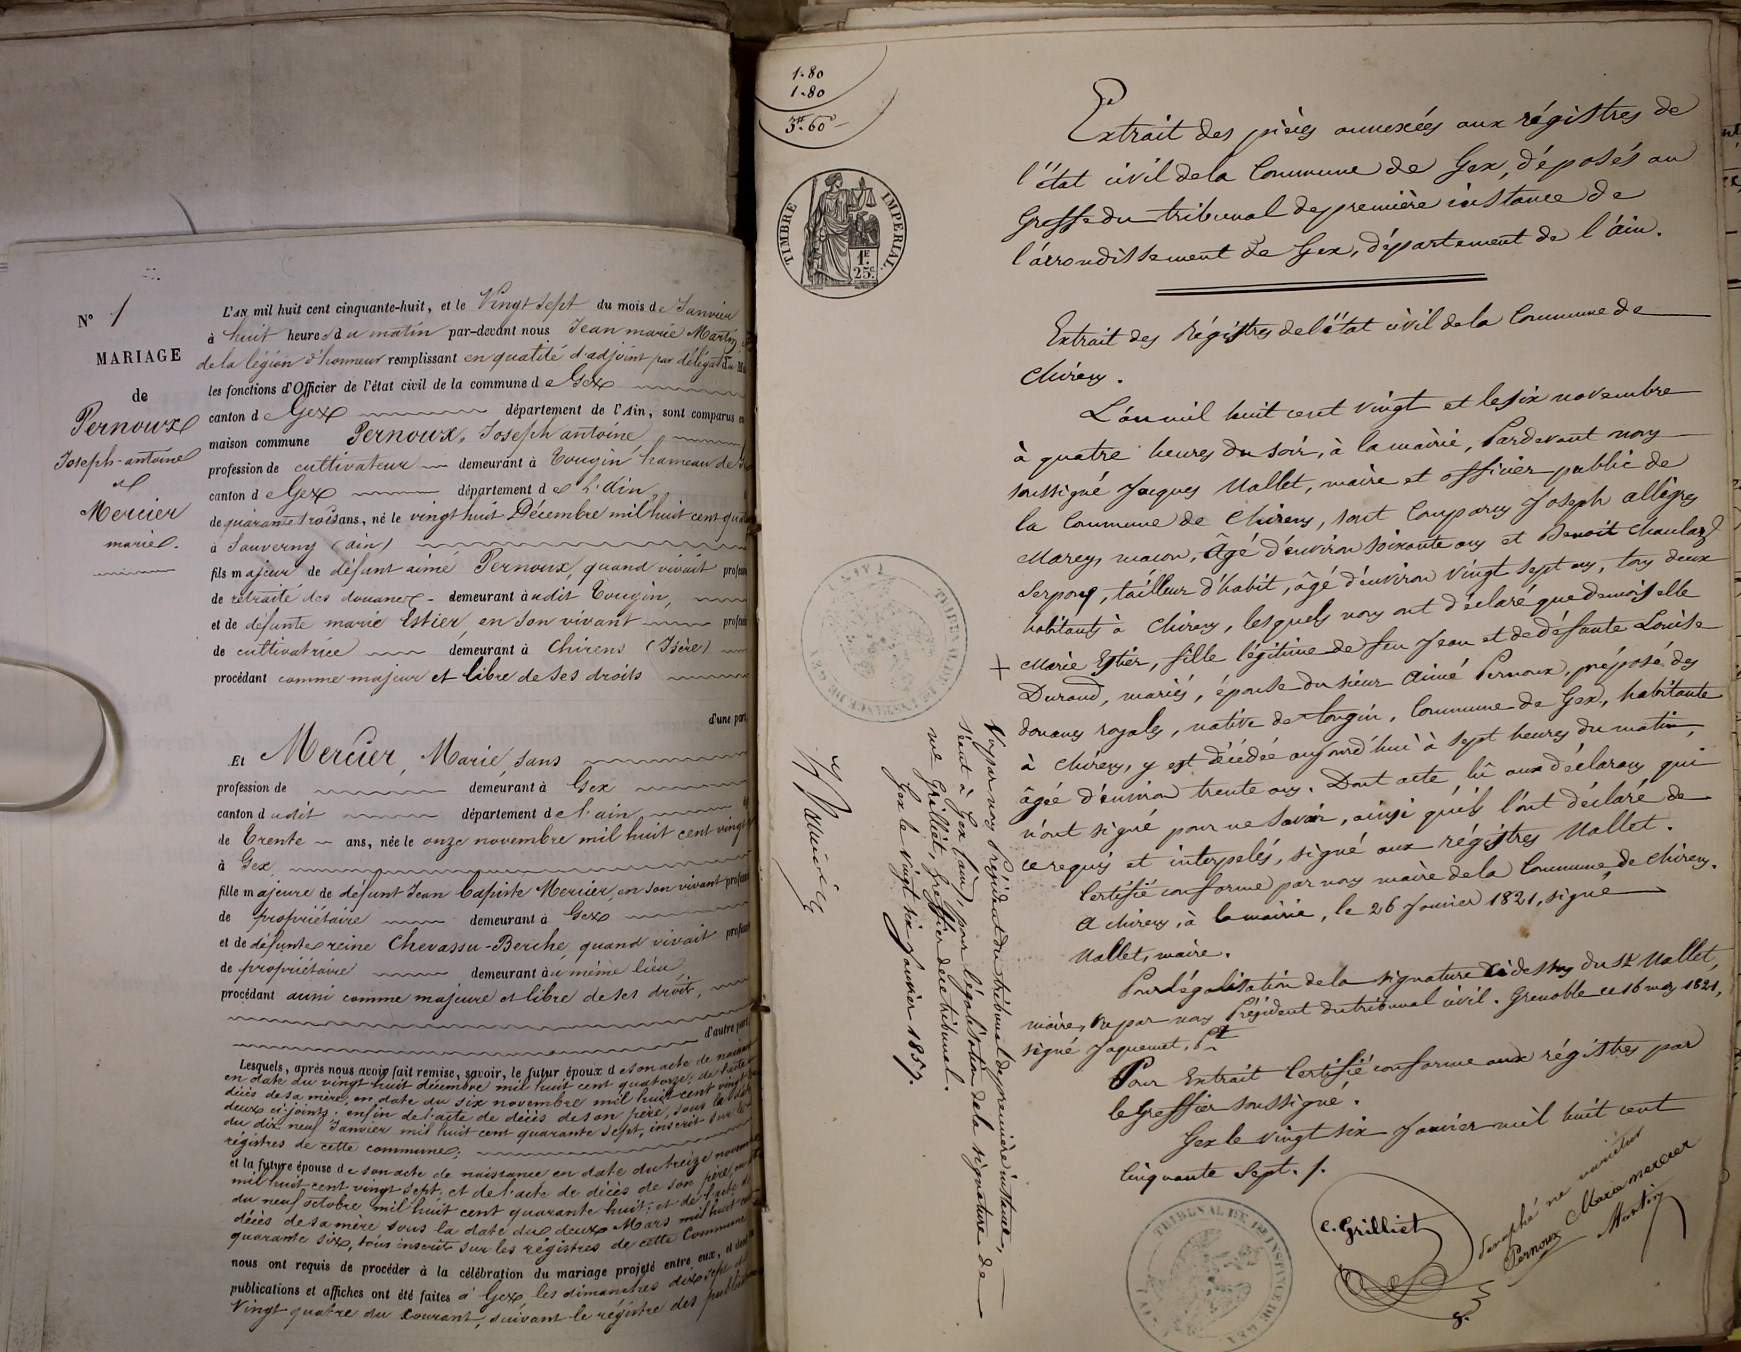 N° 1
MARIAGE
de
Pernoux
Joseph-antoine
et
Mercier
marie.
L'AN mil huit cent cinquante-huit, et le Vingt sept du mois de Janvier
à huit heures du matin par-devant nous Jean marie Martin
de la légion d'honneur remplissant en qualité d'adjoint par délégation
les fonctions d'Officier de l'état civil de la commune de Gex
canton de Gex département de l'Ain, sont comparus en
maison commune Pernoux, Joseph antoine
profession de cultivateur demeurant à Tougin hameau de
canton de Gex département de l'Ain
de quarante trois ans, né le vingt huit Décembre mil huit cent
à Sauverny (ain)
fils majeur de défunt aimé Pernoux, quand vivait
de retraité des douanes - demeurant audit Tougin,
et de défunte marie Estier, en son vivant
de cultivatrice demeurant à Chirens (Isère)
procédant comme majeur et libre de ses droits
d'une part
Et Mercier, Marie, sans
profession de demeurant à Gex
canton dudit département de l'ain
de Trente ans, née le onze novembre mil huit cent vingt
à Gex
fille majeure de défunt Jean Baptiste Mercier, en son vivant
de propriétaire demeurant à Gex
et de défunte reine Chevassu-Berche, quand vivait
de propriétaire demeurant au même lieu
procédant aussi comme majeure et libre de ses droits,
d'autre part
Lesquels, après nous avoir fait remise, savoir, le futur époux de son acte de
en date du vingt huit décembre mil huit cent quatorze; de l'acte
décès de sa mère, en date du six novembre mil huit cent vingt
deux ci-joints; enfin de l'acte de décès de son père, sous la
du dix neuf Janvier mil huit cent quarante sept, inscrit sur les
régistres de cette commune;
et la future épouse de son acte de naissance en date du treize
mil huit cent vingt sept; et de l'acte de décès de son père,
du neuf octobre mil huit cent quarante huit; et de l'acte
décès de sa mère sous la date du deux Mars mil huit
quarante six, tous inscrits sur les régistres de cette Commune
nous ont requis de procéder à la célébration du mariage projeté entre eux, et
publications et affiches ont été faites à Gex les dimanches dix sept et
Vingt quatre du courant, suivant le régistre des
1.80
1.80
3.60
TIMBRE IMPERIAL
1F
25c
Extrait des pièces annexées aux régistres de
l'état civil de la Commune de Gex, déposés au
Greffe du tribunal de première instance de
l'arrondissement de Gex, département de l'ain.
Extrait des Régistres de l'état civil de la Commune de
Chirens.
L'an mil huit cent vingt et le six novembre
à quatre heures du soir, à la mairie, Pardevant nous
soussigné Jacques Mallet, maire et officier public de
la Commune de Chirens, sont Comparus Joseph allègres
Marey, macon, âgé d'environ soixante ans et Benoit
tailleur d'habit, âgé d'environ vingt sept ans, tous deux
habitants à Chirens, lesquels nous ont déclaré que demoiselle
Marie Estier, fille légitime de feu Jean et de défunte Louise
Durand, mariés, épouse du sieur Aimé Pernoux, préposé des
douanes royales, native de Tougin, Commune de Gex, habitante
à Chirens, y est décédée aujourd'hui à sept heures du matin,
âgée d'environ trente ans. Dont acte lû aux déclarans qui
n'ont signé pour ne savoir, ainsi qu'ils l'ont déclaré de
ce requis et interpelés, signé aux régistres Mallet.
Certifié conforme par nous maire de la Commune de Chirens.
A Chirens, à la mairie, le 26 Janvier 1821, signé
Mallet, maire.
Pour légalisation de la signature ci dessus du Sr Mallet,
maire, Vu par nous Président du tribunal civil. Grenoble ce 16 may 1821,
signé Jaquemet, Pt
Pour Extrait Certifié conforme aux régistres par
le Greffier soussigné.
Gex le vingt six Janvier mil huit cent
Cinquante sept.
C. Grilliet
Vu par nous Président du tribunal de première instance,
séant à Gex (ain), pour légalisation de la signature de
me Grilliet, Greffier de ce tribunal.
Gex le vingt six janvier 1857.
+
TRIBUNAL DE 1re INSTANCE DE GEX
TRIBUNAL DE 1re INSTANCE DE GEX
paraphé ne varietur
Pernoux
Marie mercier
Martin